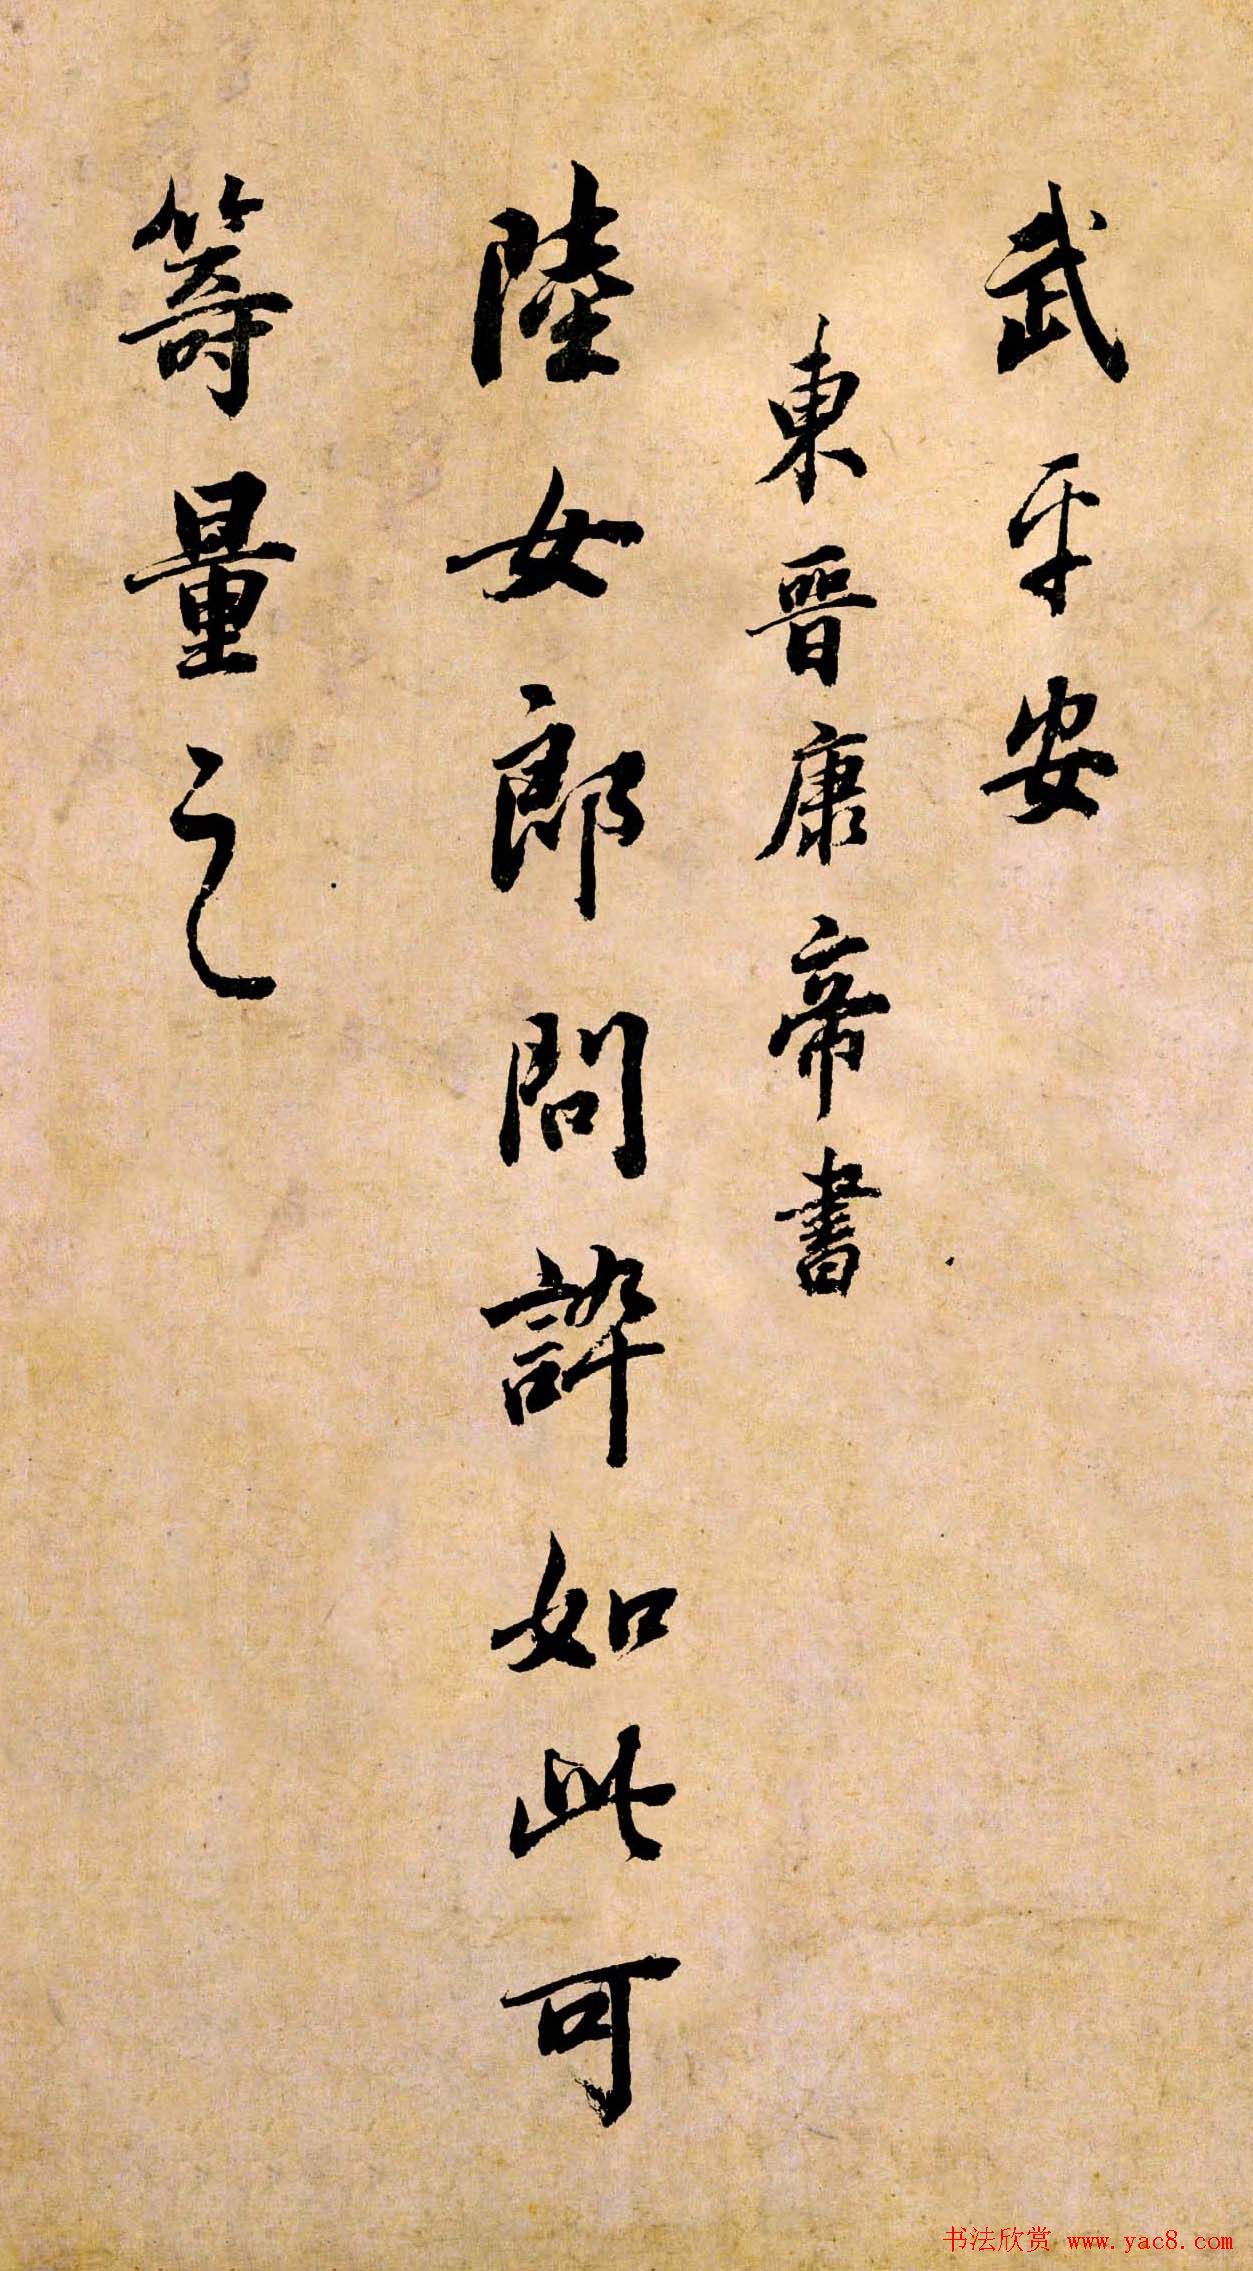 武平安
東晉康帝書
陸女郎問訃如此可
籌量之
书法欣赏 www.yac8.com